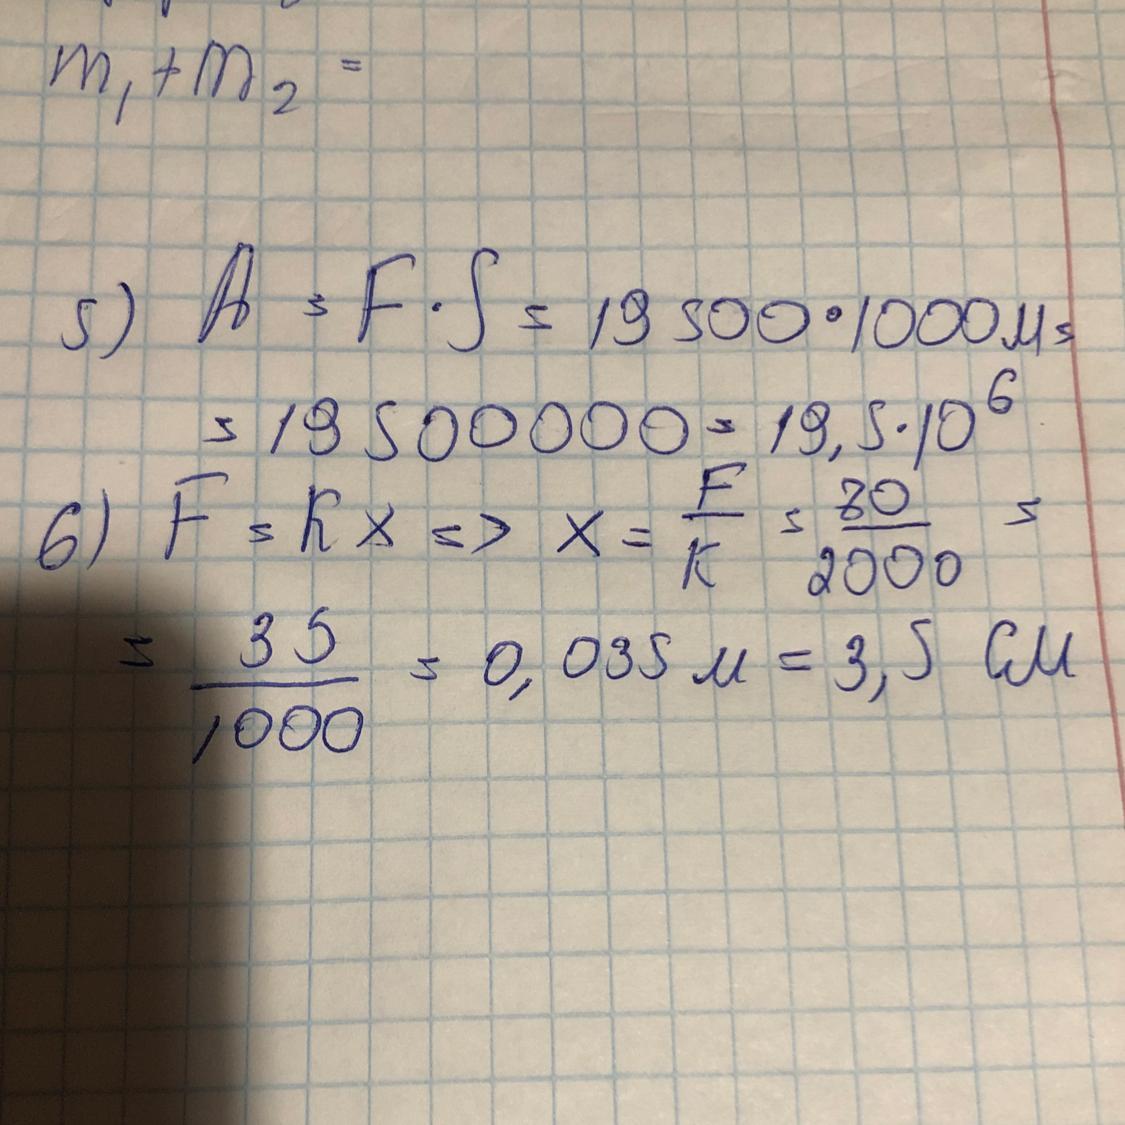 m₁+m₂ =
5) A = F·S = 19 500·1000м=
= 19 500000 = 19,5·10⁶
6) F = Kx => x = F/K = 80/2000 =
= 35/1000 = 0,035 м = 3,5 см